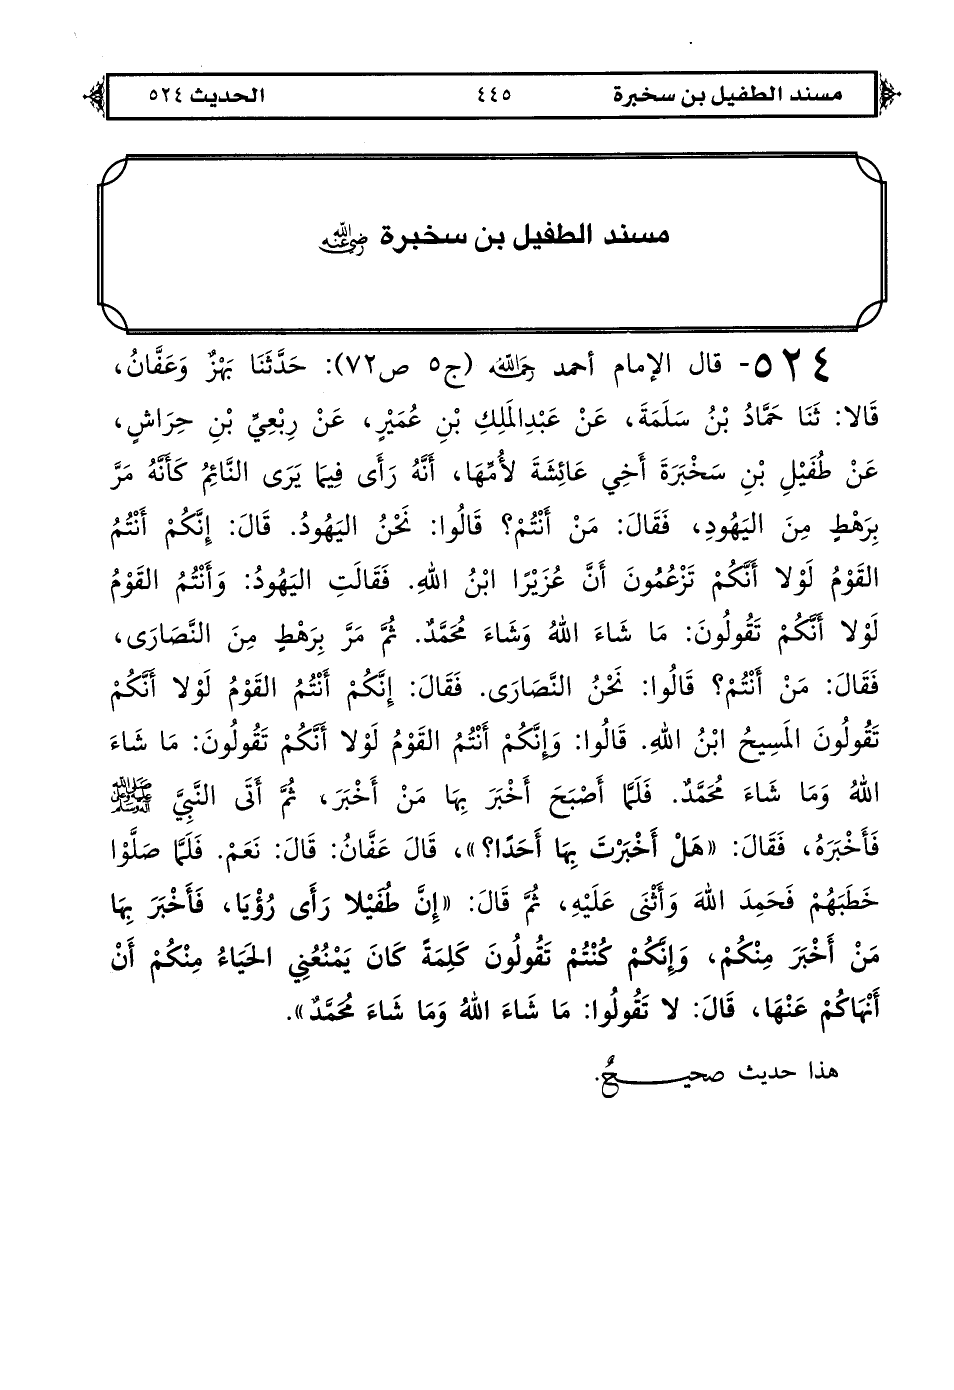 مسند الطفيل بن سخبرة ٤٤٥ الحديث ٥٢٤
مسند الطفيل بن سخبرة رضي الله عنه
٥٢٤- قال الإمام أحمد رحمه الله (ج٥ ص٧٢): حَدَّثَنَا بَهْزٌ وَعَفَّانُ،
قَالا: ثَنَا حَمَّادُ بْنُ سَلَمَةَ، عَنْ عَبْدِالمَلِكِ بْنِ عُمَيْرٍ، عَنْ رِبْعِيِّ بْنِ حِرَاشٍ،
عَنْ طُفَيْلِ بْنِ سَخْبَرَةَ أَخِي عَائِشَةَ لأُمِّهَا، أَنَّهُ رَأَى فِيمَا يَرَى النَّائِمُ كَأَنَّهُ مَرَّ
بِرَهْطٍ مِنَ اليَهُودِ، فَقَالَ: مَنْ أَنْتُمْ؟ قَالُوا: نَحْنُ اليَهُودُ. قَالَ: إِنَّكُمْ أَنْتُمُ
القَوْمُ لَوْلا أَنَّكُمْ تَزْعُمُونَ أَنَّ عُزَيْرًا ابْنُ اللهِ. فَقَالَتِ اليَهُودُ: وَأَنْتُمُ القَوْمُ
لَوْلا أَنَّكُمْ تَقُولُونَ: مَا شَاءَ اللهُ وَشَاءَ مُحَمَّدٌ. ثُمَّ مَرَّ بِرَهْطٍ مِنَ النَّصَارَى،
فَقَالَ: مَنْ أَنْتُمْ؟ قَالُوا: نَحْنُ النَّصَارَى. فَقَالَ: إِنَّكُمْ أَنْتُمُ القَوْمُ لَوْلا أَنَّكُمْ
تَقُولُونَ المَسِيحُ ابْنُ اللهِ. قَالُوا: وَإِنَّكُمْ أَنْتُمُ القَوْمُ لَوْلا أَنَّكُمْ تَقُولُونَ: مَا شَاءَ
اللهُ وَمَا شَاءَ مُحَمَّدٌ. فَلَمَّا أَصْبَحَ أَخْبَرَ بِهَا مَنْ أَخْبَرَ، ثُمَّ أَتَى النَّبِيَّ ﷺ
فَأَخْبَرَهُ، فَقَالَ: «هَلْ أَخْبَرْتَ بِهَا أَحَدًا؟»، قَالَ عَفَّانُ: قَالَ: نَعَمْ. فَلَمَّا صَلَّوْا
خَطَبَهُمْ فَحَمِدَ اللهَ وَأَثْنَى عَلَيْهِ، ثُمَّ قَالَ: «إِنَّ طُفَيْلا رَأَى رُؤْيَا، فَأَخْبَرَ بِهَا
مَنْ أَخْبَرَ مِنْكُمْ، وَإِنَّكُمْ كُنْتُمْ تَقُولُونَ كَلِمَةً كَانَ يَمْنَعُنِي الحَيَاءُ مِنْكُمْ أَنْ
أَنْهَاكُمْ عَنْهَا، قَالَ: لا تَقُولُوا: مَا شَاءَ اللهُ وَمَا شَاءَ مُحَمَّدٌ».
هذا حديث صحيحٌ.